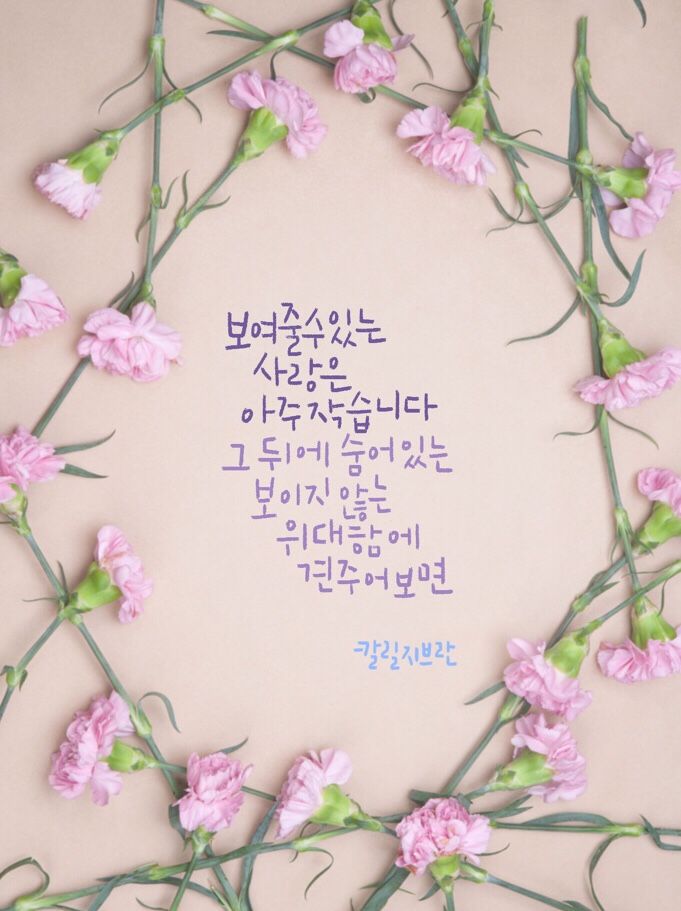 보여줄수있는
사랑은
아주 작습니다
그 뒤에 숨어있는
보이지 않는
위대함에
견주어보면
-칼릴지브란